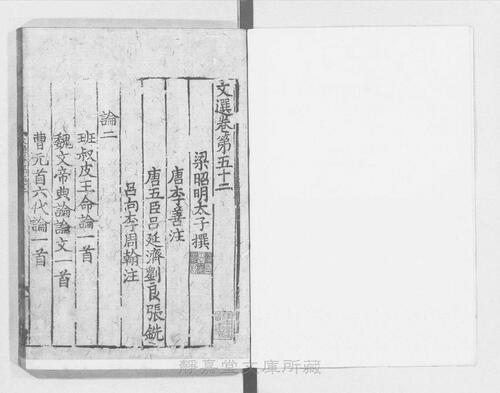 文選卷第五十二
梁昭明太子撰
唐李善注
唐五臣呂延濟劉良張銑
呂向李周翰注
論二
班叔皮王命論一首
魏文帝典論論文一首
曹元首六代論一首
靜嘉堂文庫所藏